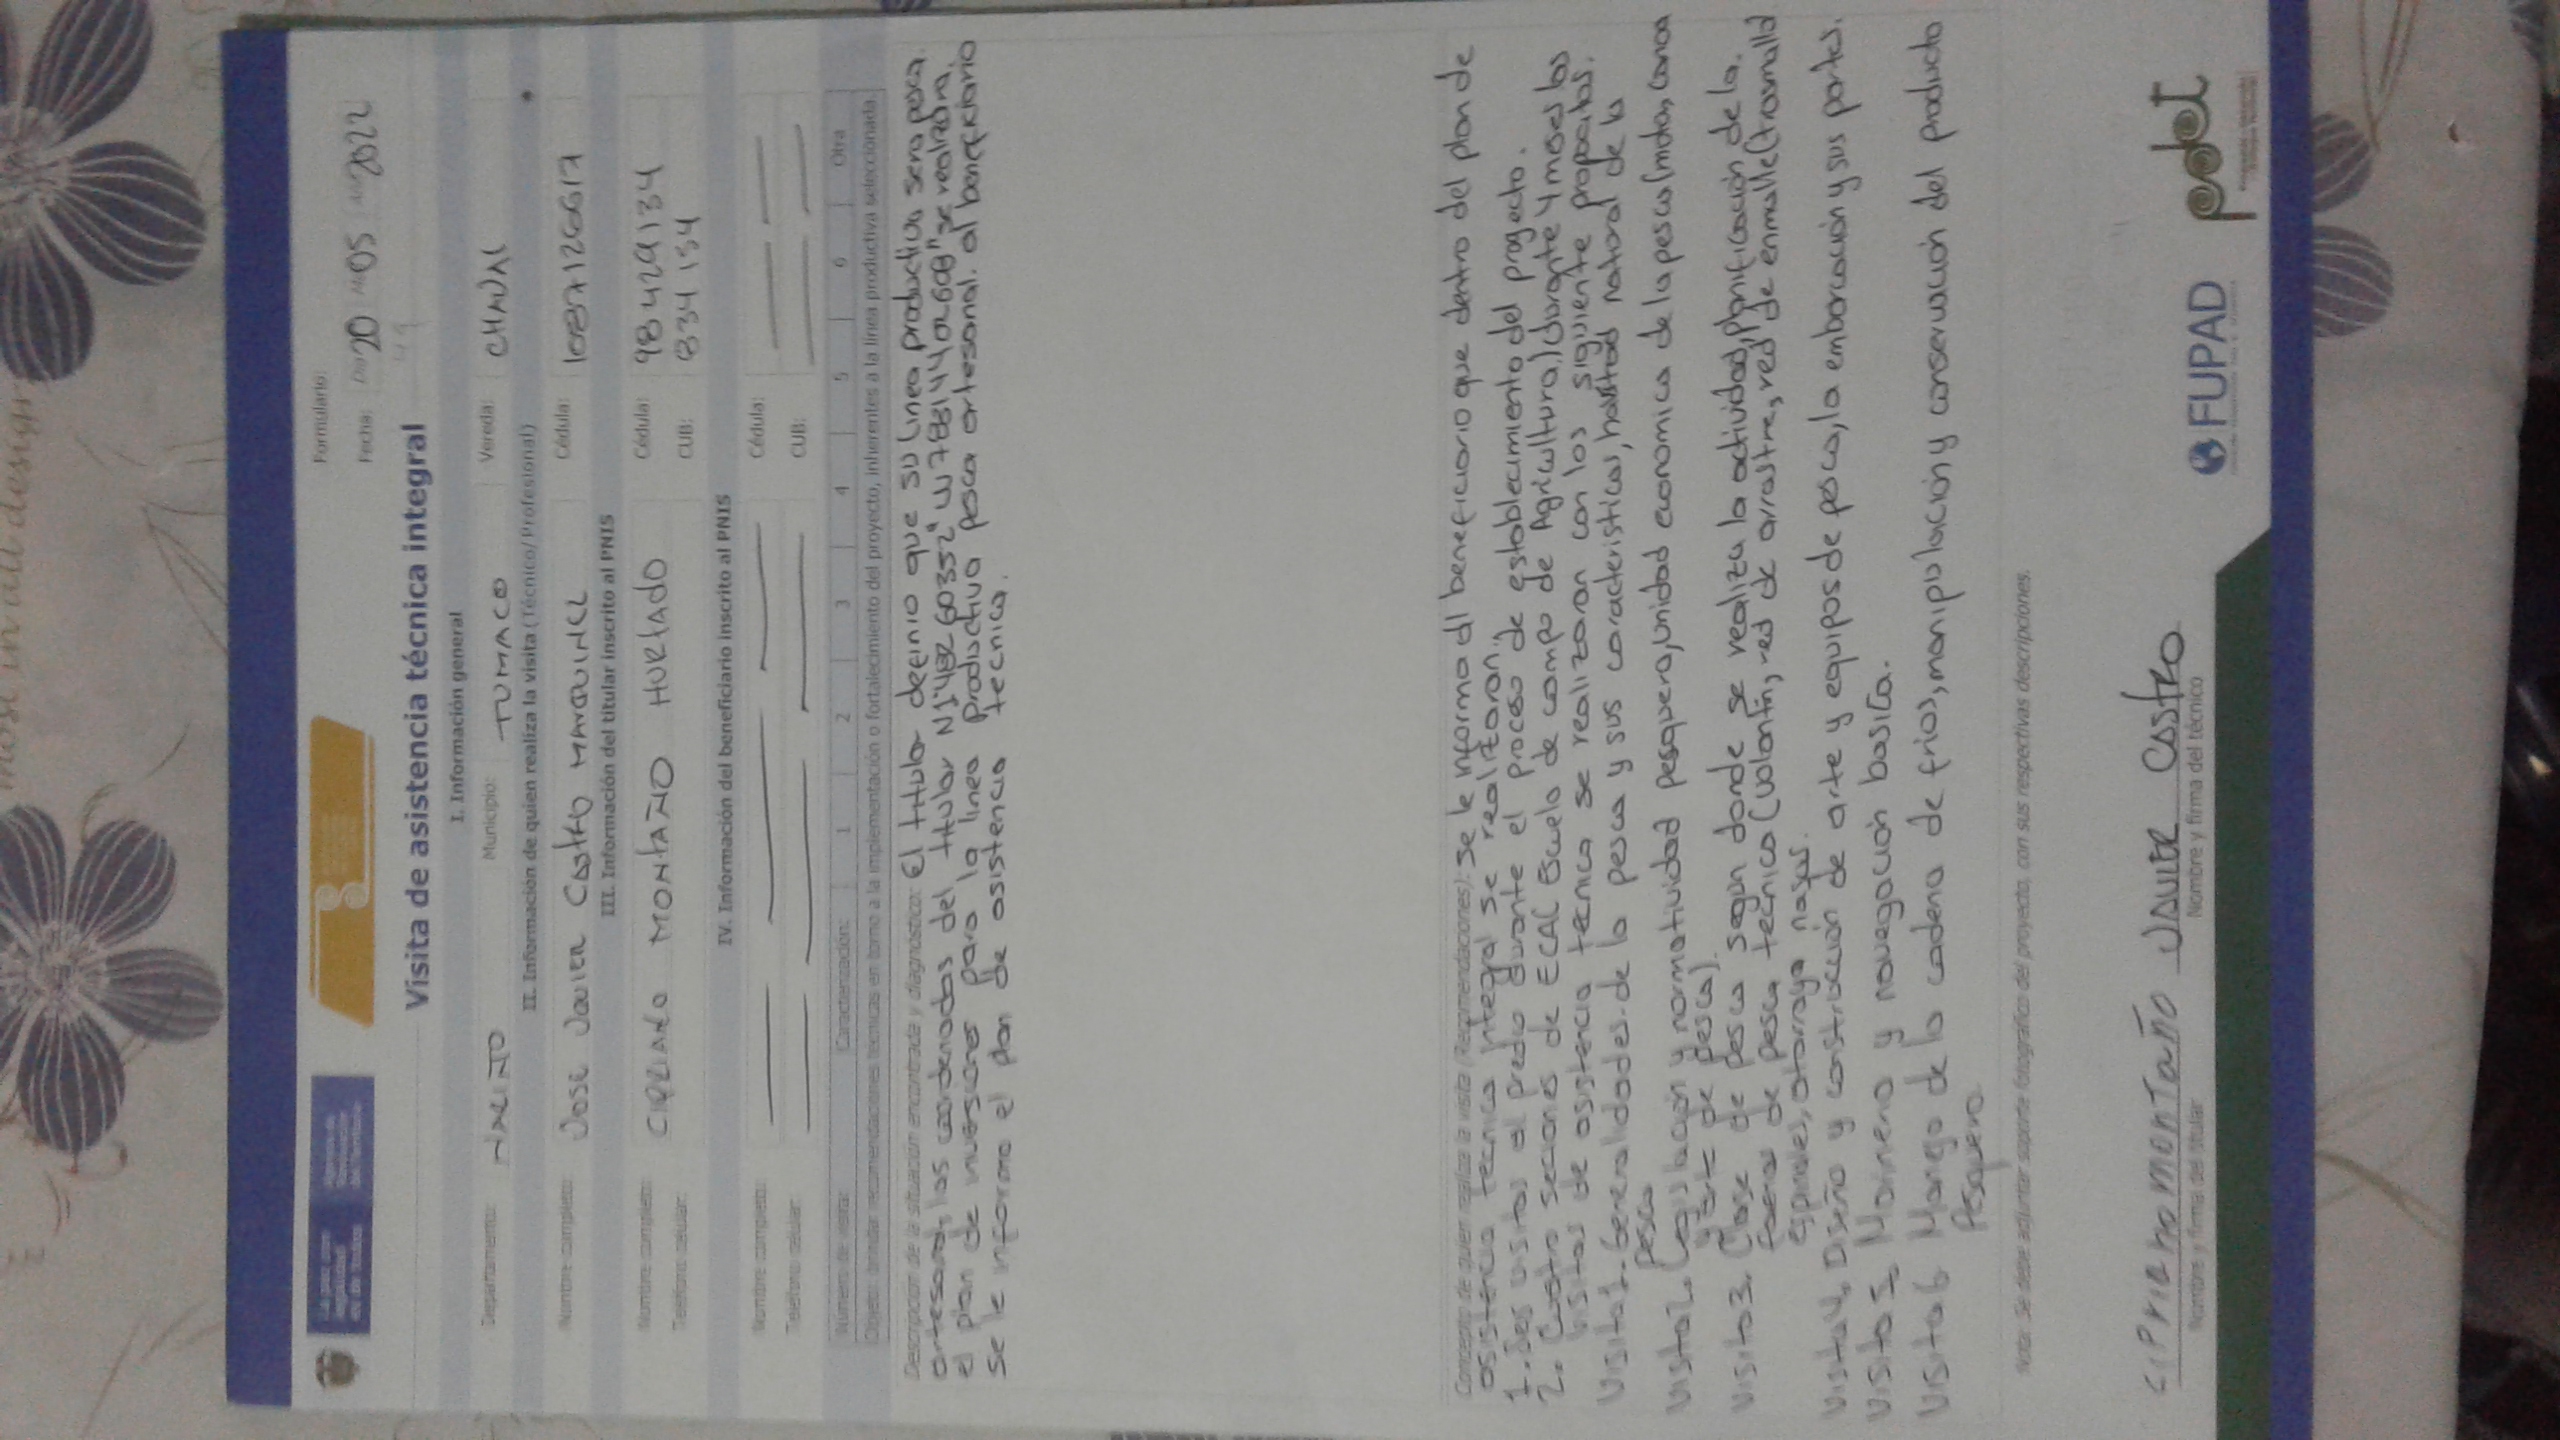 Formulario:
Fecha: Día 20 Mes 05 Año 2022
Visita de asistencia técnica integral
I. Información general
Departamento: NARIÑO Municipio: TUMACO Vereda: CHAJAL
II. Información de quien realiza la visita (Técnico/Profesional)
Nombre completo: JOSE JAVIER CASTRO MARQUINEZ Cédula: 1087126617
III. Información del titular inscrito al PNIS
Nombre completo: CIPRIANO MONTAÑO HURTADO Cédula: 98429134
Teléfono celular: CUB:
IV. Información del beneficiario inscrito al PNIS
Nombre completo: Cédula:
Teléfono celular: CUB:
Número de visita: Caracterización: 1 2 3 4 5 6 Otra
Objeto: brindar recomendaciones técnicas en torno a la implementación o fortalecimiento del proyecto, inherentes a la línea productiva seleccionada.
Descripción de la situación encontrada y diagnóstico: El titular definio que su linea productiva sera pesca
artesanal, las coordenadas del titular se realizara
el plan de inversiones para la linea productiva pesca artesanal. al beneficiario
se le informo el plan de asistencia tecnica.
Concepto de quien realiza la visita (Recomendaciones): se le informo al beneficiario que dentro del plan de
asistencia tecnica integral se realizaran.
1. Dos visitas al predio durante el proceso de establecimiento del proyecto.
2. Cuatro seciones de ECAC Escuela de campo de Agricultura,) durante 4 meses las
visitas de asistencia tecnica se realizaran con los siguiente propocitos.
Visita 1. Generalidades de la pesca y sus caracteristicas, habitad natural de la
pesca
Visita 2. Legislacion y normatividad pesquera, unidad economica de la pesca (motor, canoa
y arte de pesca).
Visita 3. Clase de pesca segun donde se realiza la actividad, planificación de la
faena de pesca tecnica (volantin, red de arrastre, red de enmalle (trasmallo
espineles, atarraya nasas.
Visita 4, Diseño y construcción de arte y equipos de pesca, la embarcación y sus partes.
Visita 5, Marinero y navegación basica.
Visita 6 Manejo de la cadena de frios, manipulación y conservación del producto
pesquero.
Nota: Se debe adjuntar soporte fotográfico del proyecto, con sus respectivas descripciones.
CIPRIANO MONTAÑO JAVIER CASTRO
Nombre y firma del titular Nombre y firma del técnico
FUPAD pdet